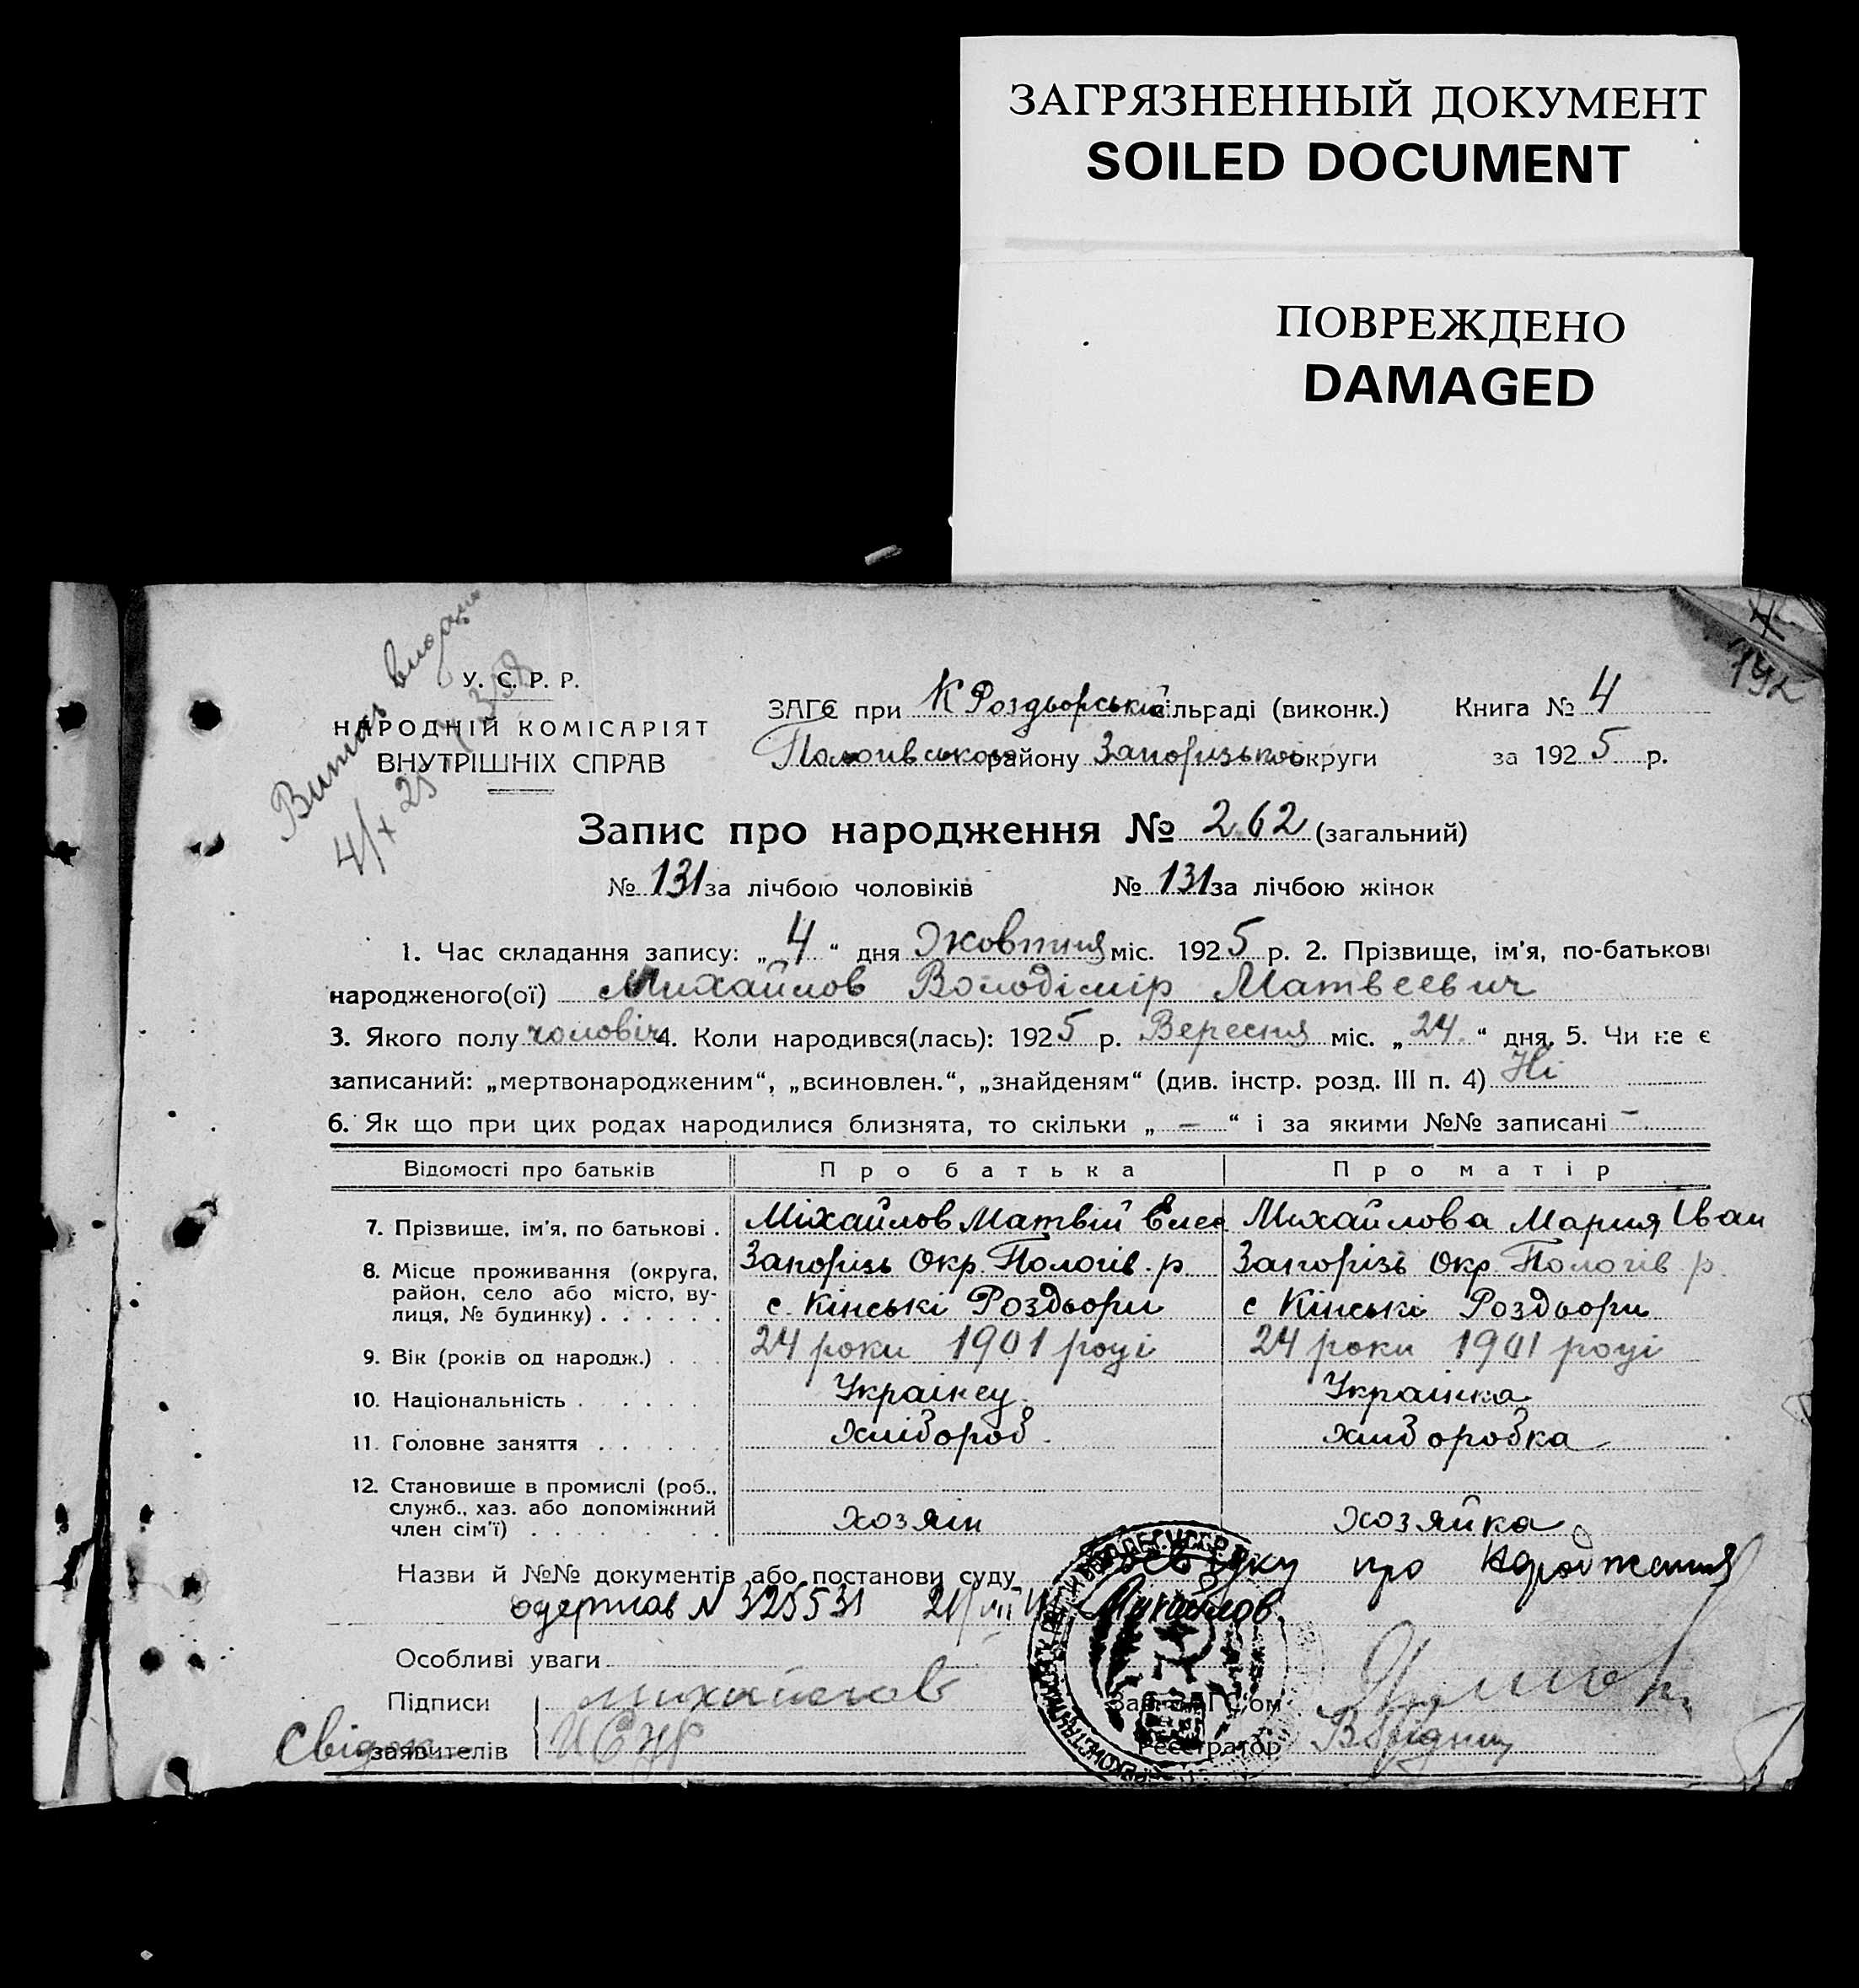 ЗАГРЯЗНЕННЫЙ ДОКУМЕНТ
SOILED DOCUMENT
ПОВРЕЖДЕНО
DAMAGED
192
Витяг видан
4/X 25
У. С. Р. Р.
НАРОДНІЙ КОМІСАРІЯТ
ВНУТРІШНІХ СПРАВ
ЗАГС при К Роздьорській сільраді (виконк.) Книга № 4
Пологівського району Запоризької округи за 1925 р.
Запис про народження № 262 (загальний)
№ 131 за лічбою чоловіків № 131 за лічбою жінок
1. Час складання запису: „4“ дня Жовтня міс. 1925 р. 2. Прізвище, ім'я, по-батькові
народженого(ої) Михайлов Володімір Матвеевич
3. Якого полу чоловіч 4. Коли народився(лась): 1925 р. Вересня міс. „24“ дня. 5. Чи не є
записаний: „мертвонародженим“, „всиновлен.“, „знайденям“ (див. інстр. розд. III п. 4) Ні
6. Як що при цих родах народилися близнята, то скільки „ — “ і за якими №№ записані —
Відомості про батьків Про батька Про матір
7. Прізвище, ім'я, по батькові . Міхайлов Матвій Елес Михайлова Мария Іван
8. Місце проживання (округа, район, село або місто, вулиця, № будинку) . . . . . . Запорізь Окр. Пологів. р. с. Кінські Роздьори Запорізь Окр. Пологів р. с Кінські Роздьори
9. Вік (років од народж.) . . . 24 роки 1901 році 24 роки 1901 році
10. Національність . . . . . . Українец Українка
11. Головне заняття . . . . . . Хлібороб. Хліборобка
12. Становище в промислі (роб., служб., хаз. або допоміжний член сім'ї) . . . . . . . . хозяїн хозяйка
Назви й №№ документів або постанови суду про народження
одержав N 325531 21/VII Михайлов
Особливі уваги
Підписи Михайлов Зав. ЗАГС'ом
Свідок заявителів Реєстратор